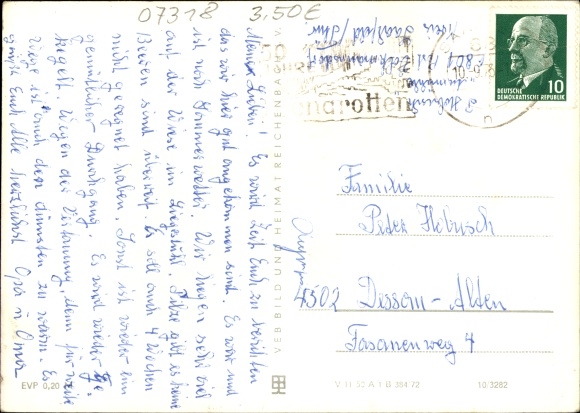 07318 3,50€
Meine Lieben! Es wird Zeit Euch zu berichten
das wir hier gut angekommen sind. Es ist und
ist noch Sommerwetter. Wir liegen sehr viel
auf der Wiese im Liegestuhl. Pilze gibt es keine
Beeren sind überreif. Es soll auch 4 Wochen
nicht geregnet haben. Sonst ist wieder ein
gemütlicher Durchgang. Es wird wieder ge-
kegelt. Wegen der
Wiese ist auch den dünnsten zu warm. Es
grüßt Euch Alle herzlichst Opa u Oma
VEB BILD UND HEIMAT REICHENBACH i. V.
EVP 0,20
V 11 50 A 1 B 384 72
10/3282
DEUTSCHE
DEMOKRATISCHE REPUBLIK
10
Familie
Peter Höbusch
4502 Dessau-Alten
Fasanenweg 4